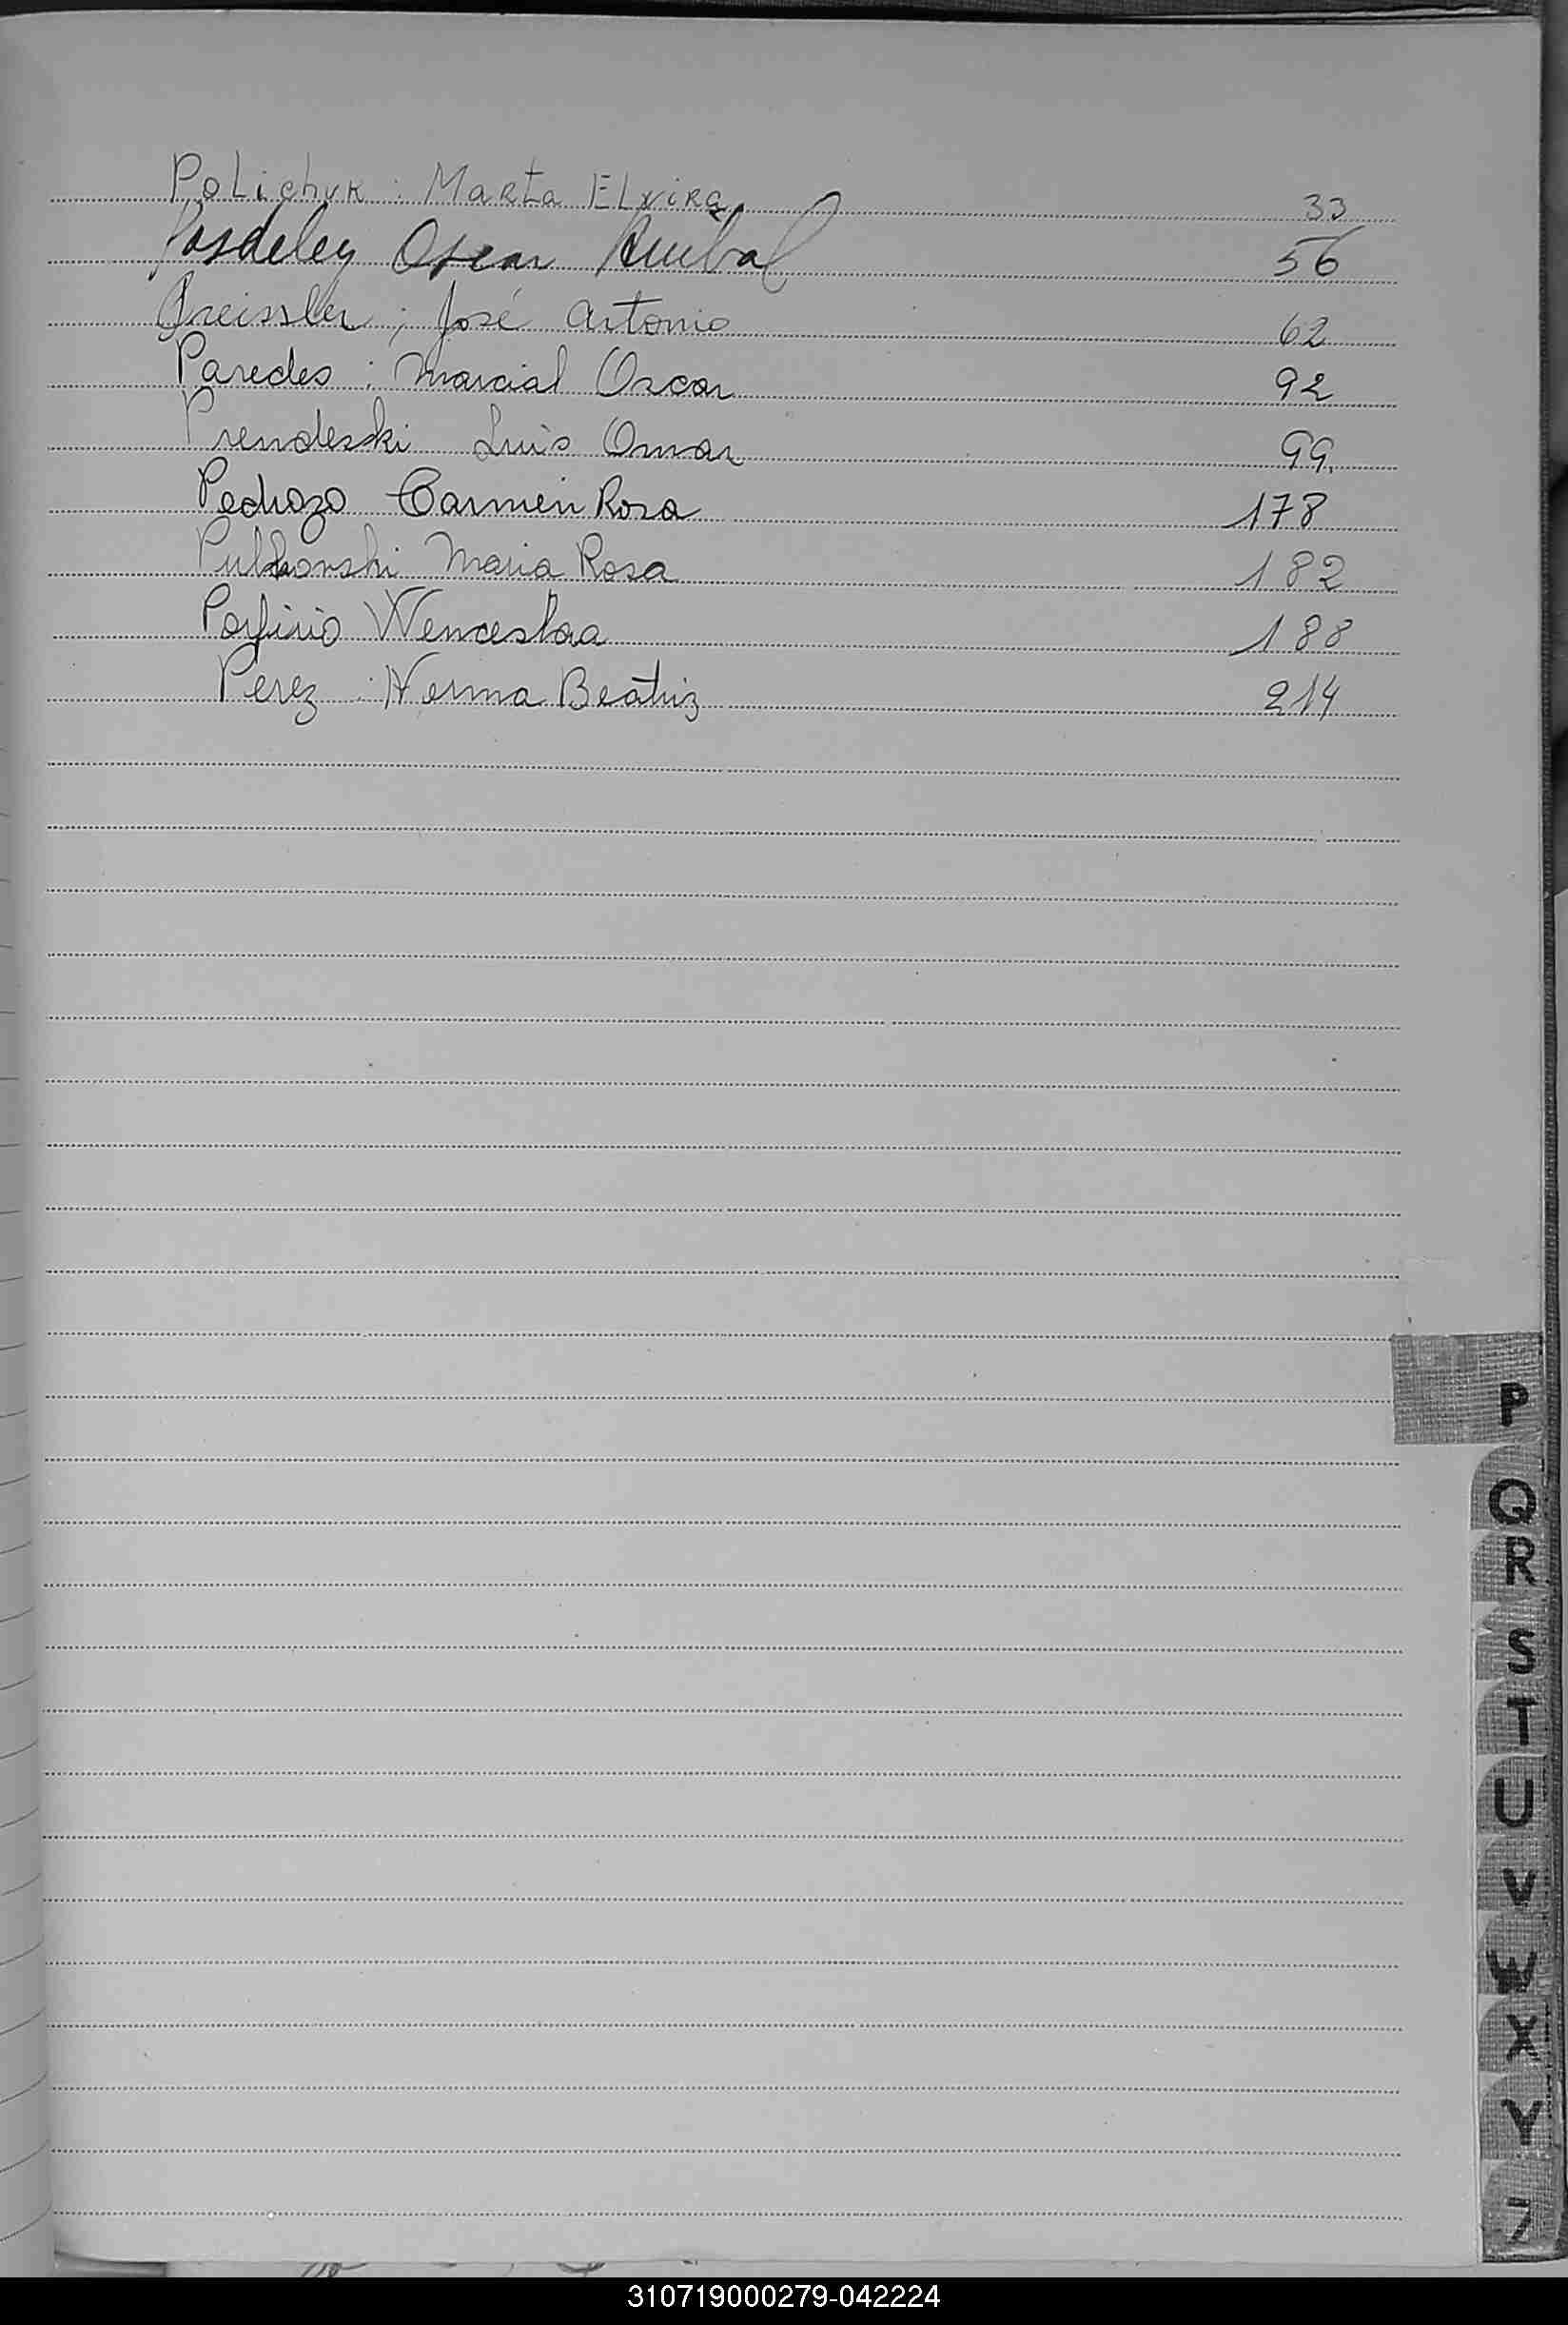 Polichuk : Marta Elvira 33
Posdeley Oscar Anibal 56
Preissler ; José Antonio 62
Paredes : Marcial Oscar 92
Prendeski Luis Omar 99
Pedrozo Carmen Rosa 178
Maria Rosa 182
Porfirio Wenceslaa 188
Perez : Norma Beatriz 214
P
Q
R
S
T
U
V
W
X
Y
Z
310719000279-042224